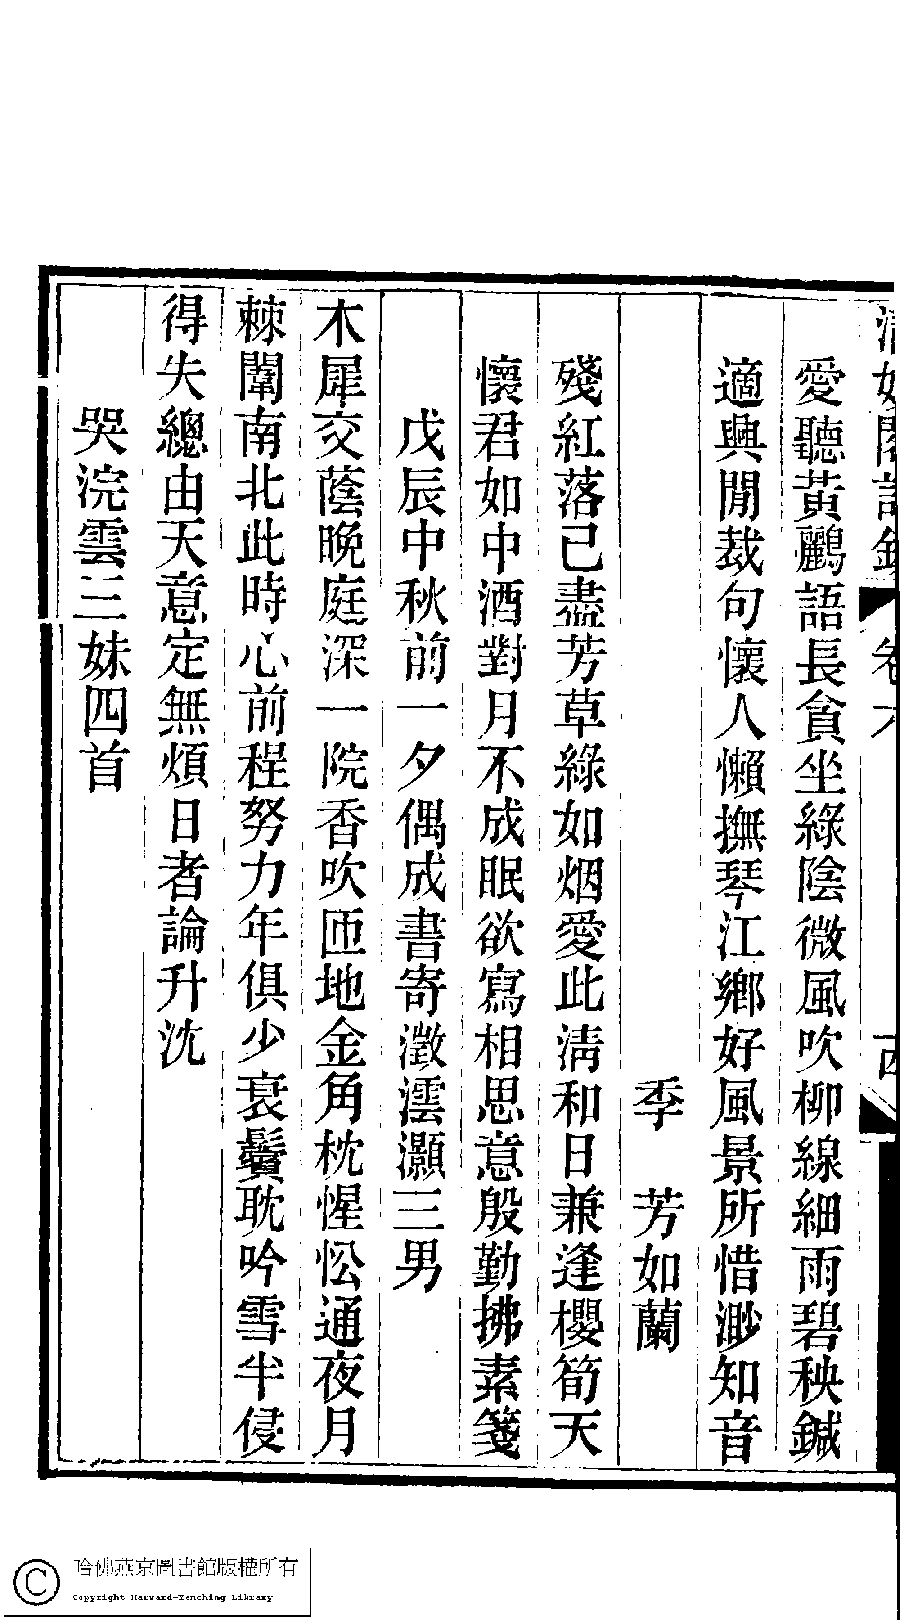 愛聽黃鸝語長貪坐綠陰微風吹柳線細雨碧秧鍼
適興閒裁句懷人懶撫琴江鄉好風景所惜渺知音
季　芳如蘭
殘紅落已盡芳草綠如烟愛此淸和日兼逢櫻筍天
懷君如中酒對月不成眠欲寫相思意殷勤拂素箋
戊辰中秋前一夕偶成書寄澂澐灝三男
木犀交蔭晚庭深一院香吹匝地金角枕惺忪通夜月
棘闈南北此時心前程努力年俱少衰鬢耽吟雪半侵
得失總由天意定無煩日者論升沈
哭浣雲三妹四首
哈佛燕京圖書館版權所有
Copyright Harvard-Yenching Library